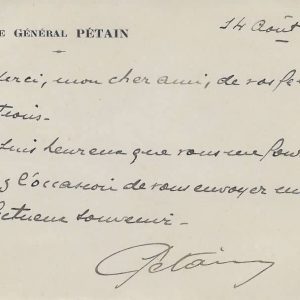 E GÉNÉRAL PÉTAIN
14 Août
erci, mon cher ami, de vos fé
tions.
suis heureux que vous me four
z l'occasion de vous envoyer un
ectueux souvenir.
Pétain